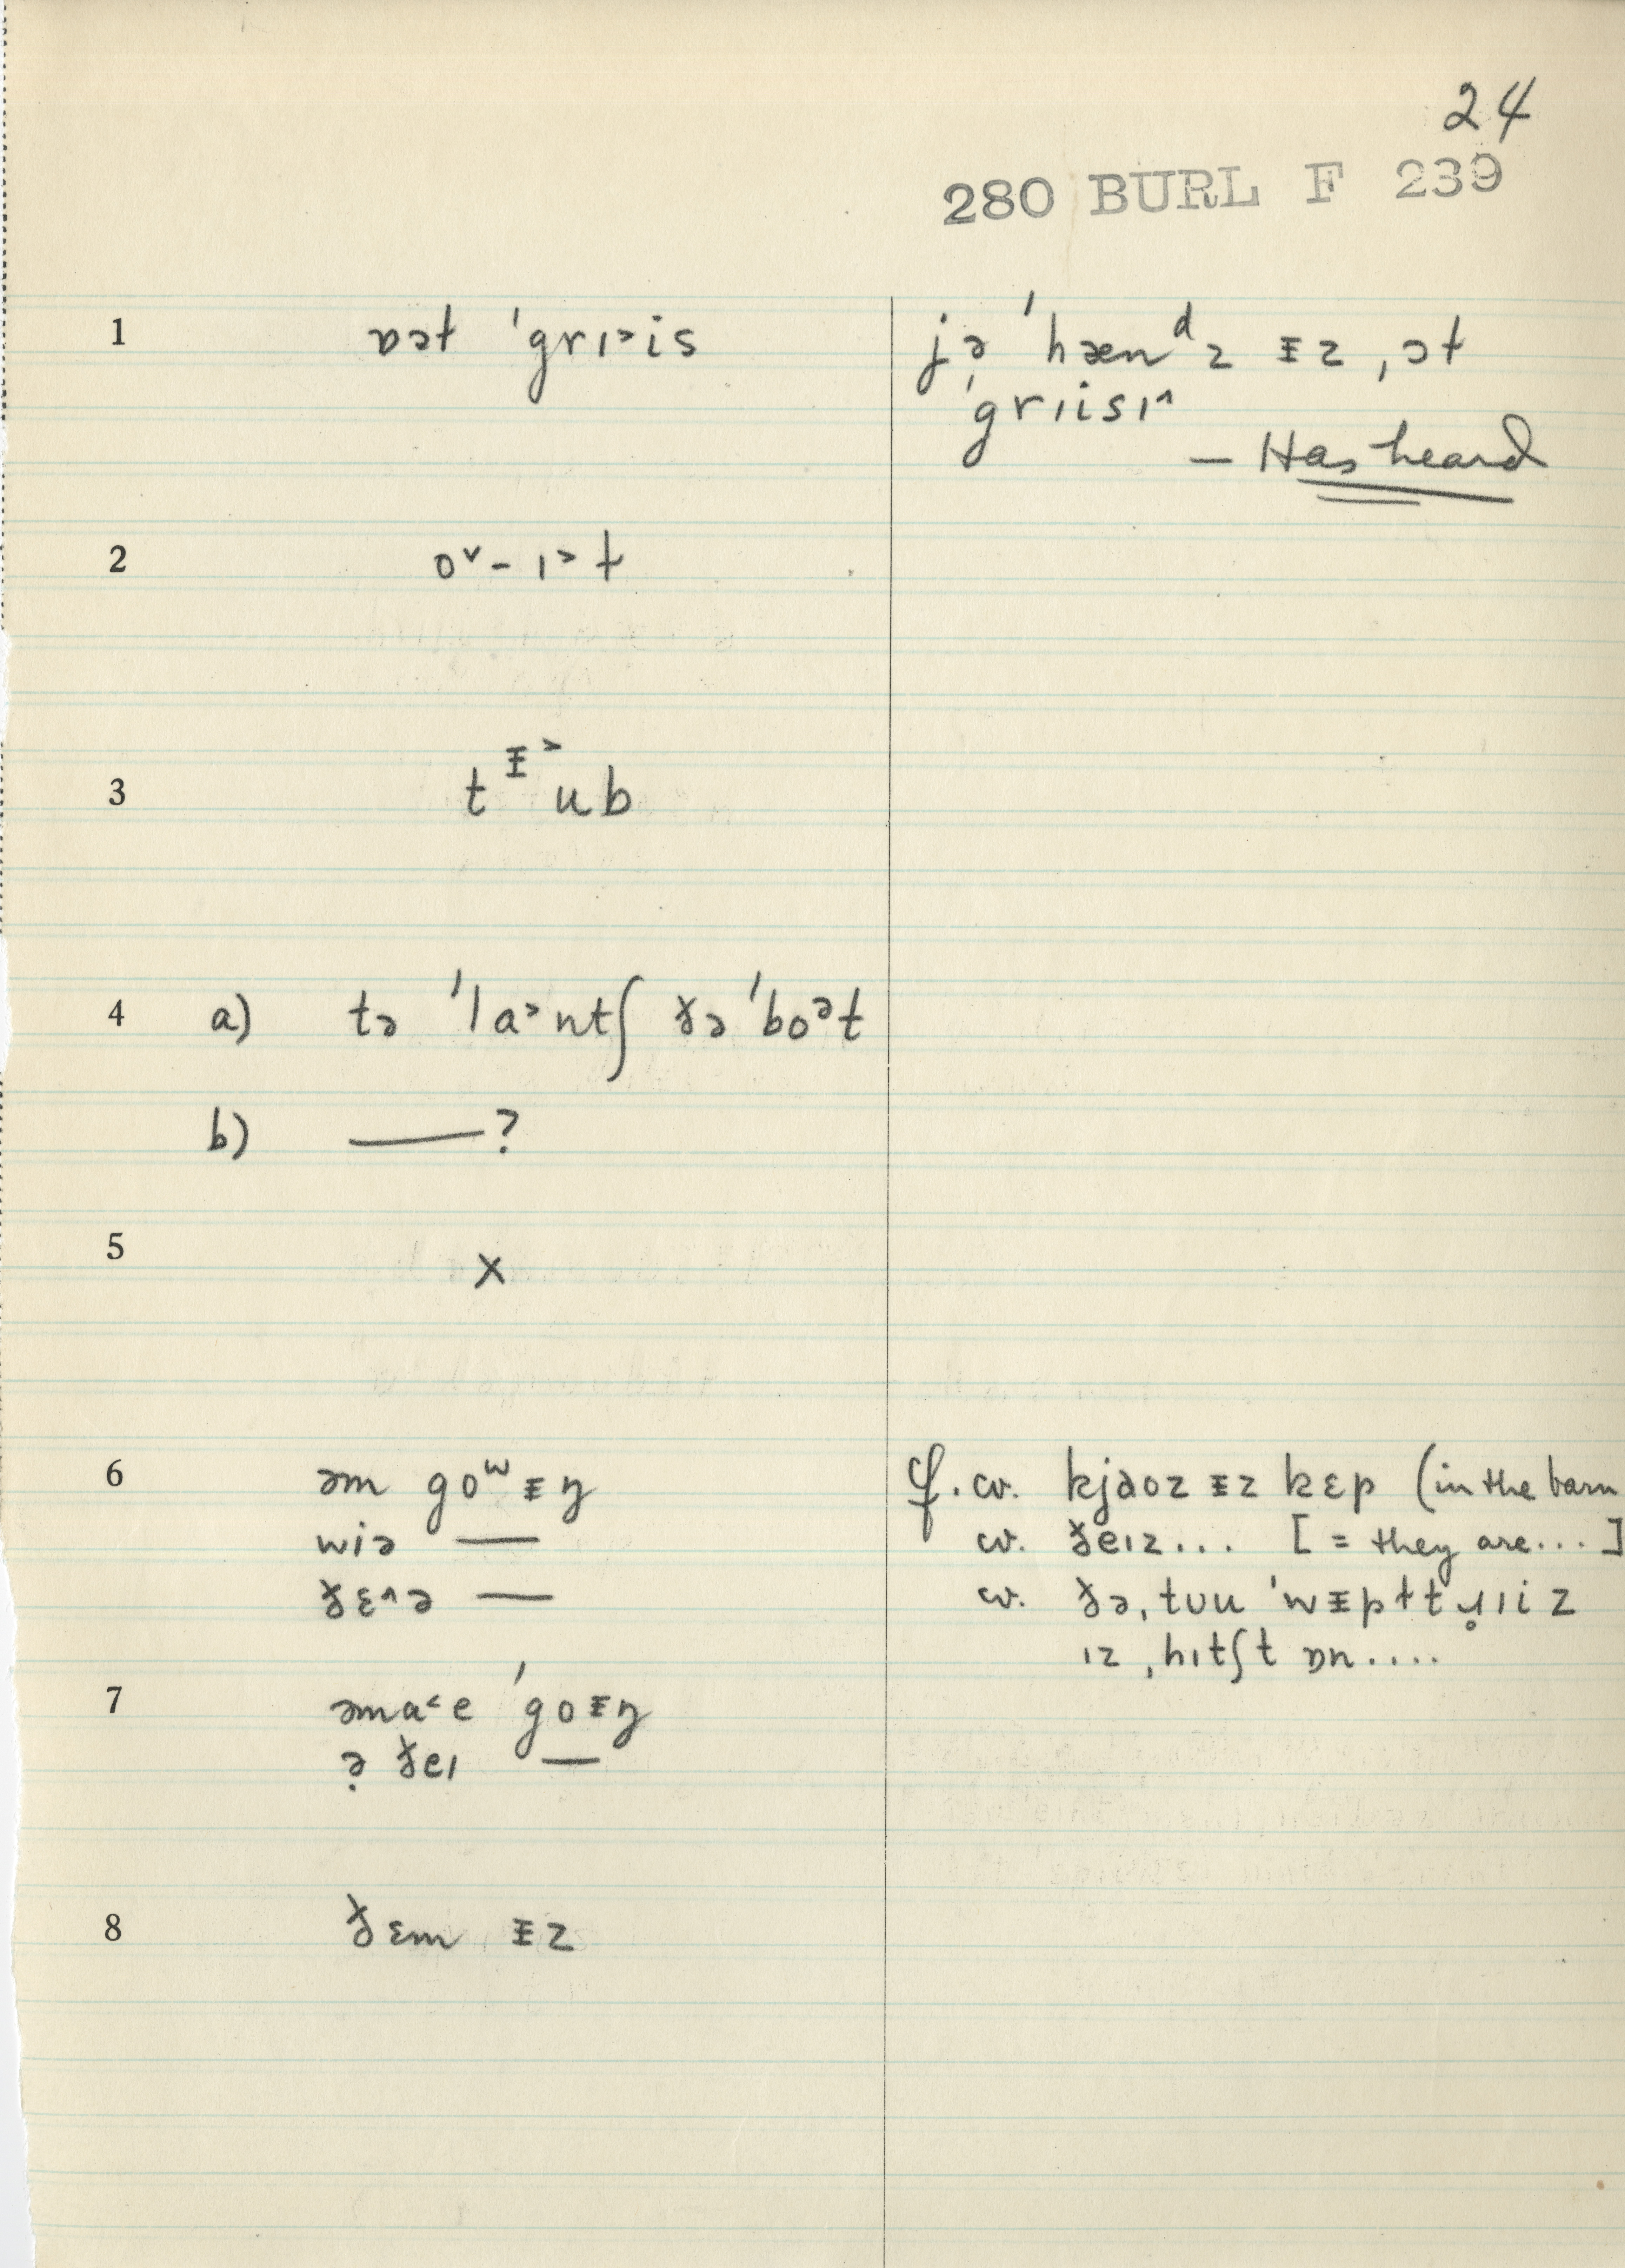 24
280 BURL F 239
1 ɒət ˈgrɪ˃is
jə̣ ˈhænᵈz ᵻz ˌɔt
ˈgrɪisɪ˄
— Has heard
2 o˅-ɪ˃t
3 tᵻ˃ub
4 a) tə ˈla˃ntʃ ðə ˈboᵊt
b) — ?
5 x
6 əm goʷᵻŋ
wiə —
ðɛ˄ə —
cf. cv. kjaoz ᵻz kɛp (in the barn
cv. ðeɪz... [= they are...]
cv. ðə ˌtʊu ˈwᵻpɫtɹ̥ɪiz
ɪz ˌhɪtʃt ɒn....
7 əma˂e ˈgoᵻŋ
ə̣ ðeɪ —
8 ðɛm ᵻz